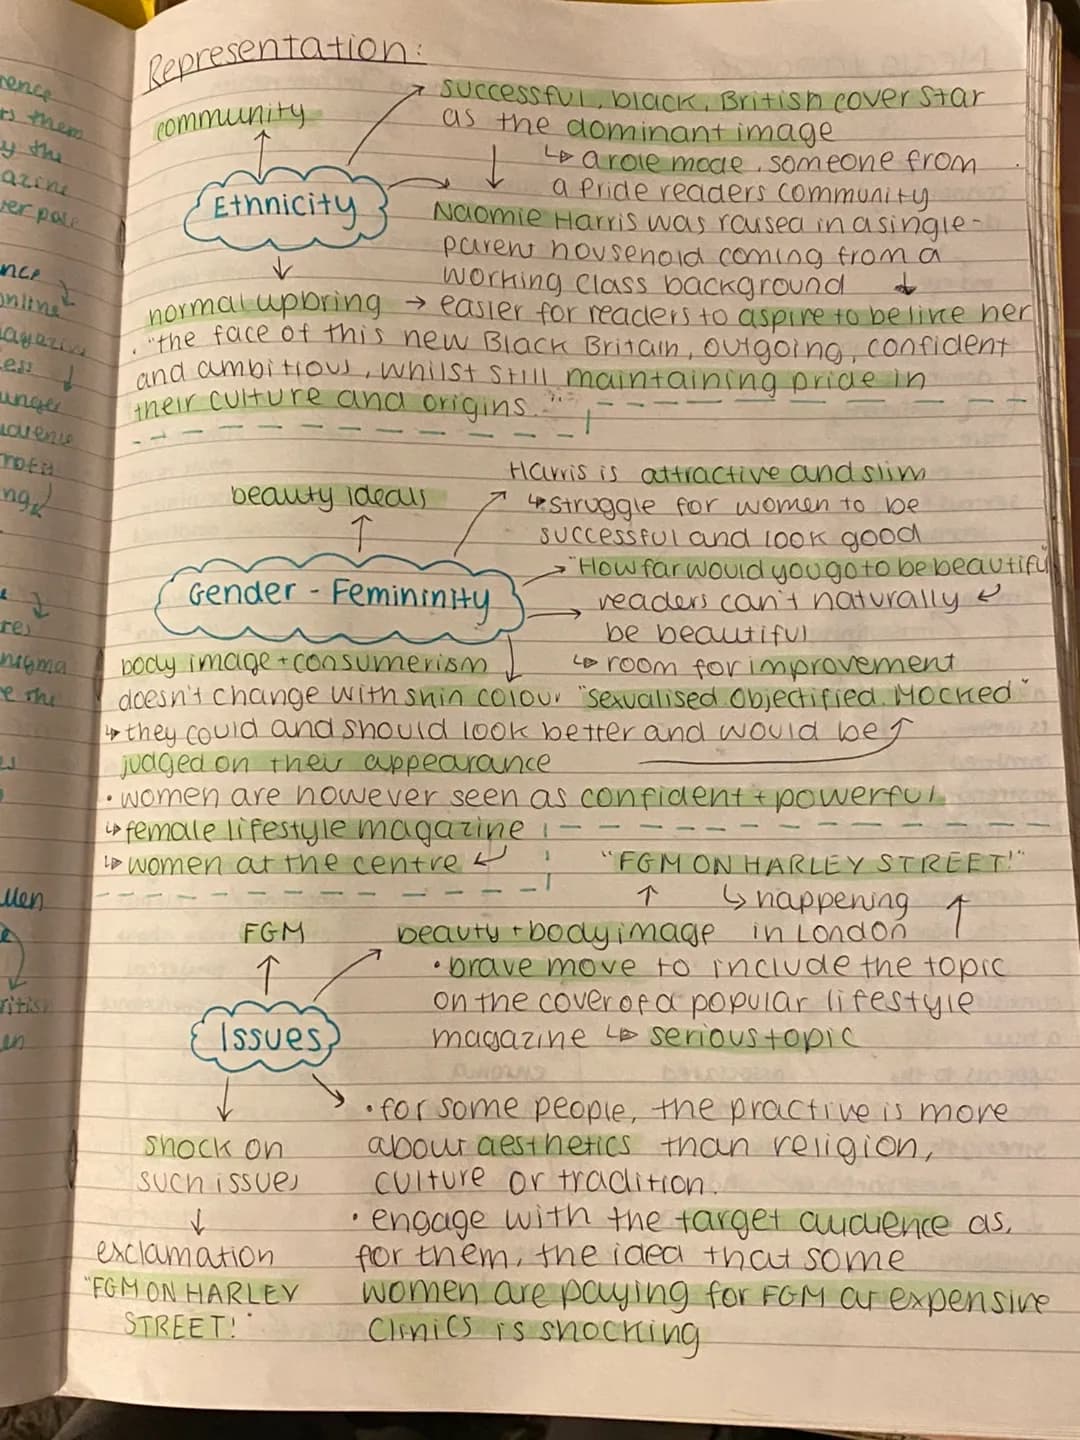 Representation:
community
successful, black, British cover star
as the dominant image
↳ a role mode, someone from
a Pride readers community
Ethnicity
Naomie Harris was raised in a single-
parent household coming from a
working class background
normal upbring → easier for readers to aspire to be like her
. "the face of this new Black Britain, outgoing, confident
and ambitious, whilst still maintaining pride in
their culture and origins."
Harris is attractive and slim
beauty ideals
↳ struggle for women to be
successful and look good
Gender - Femininity
"How far would you go to be beautiful
readers can't naturally
be beautiful
↳ room for improvement
body image + consumerism
doesn't change with skin colour "Sexualised, Objectified, Mocked"
↳ they could and should look better and would be
judged on their appearance
• women are however seen as confident + powerful
↳ female lifestyle magazine
↳ women at the centre
"FGM ON HARLEY STREET!"
↳ happening
in London
FGM
beauty + body image
• brave move to include the topic
on the cover of a popular lifestyle
magazine ↳ serious topic
Issues
• for some people, the practive is more
about aesthetics than religion,
culture or tradition.
shock on
such issues
• engage with the target audience as,
for them, the idea that some
women are paying for FGM at expensive
clinics is shocking
exclamation
"FGM ON HARLEY
STREET!"
rence
ts them
y the
azine
ver pole
nce
online
unger
ng
re,
nigma
e the
Men
ritish
en